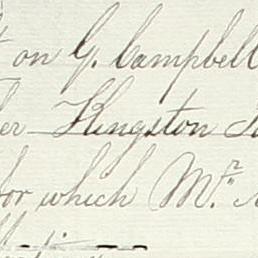 on G. Campbell
Kingston
for which Mr.